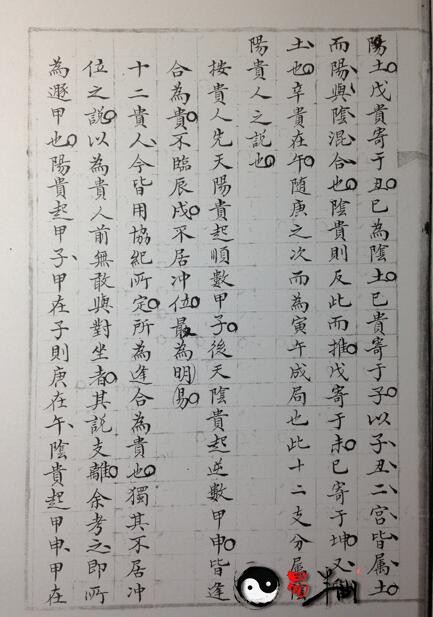 陽土戊貴寄于丑己為陰土己貴寄于子以子丑二宮皆属土
而陽與陰混合也陰貴則反此而推戊寄于未己寄于坤又
土也辛貴在午随庚之次而為寅午成局也此十二支分属
陽貴人之説也
按貴人先天陽貴起順數甲子後天陰貴起逆數甲申皆逢
合為貴不臨辰戌不居冲位最為明易
十二貴人今皆用協紀所定所為逢合為貴也獨其不居冲
位之説以為貴人前無敢與對坐者其説支離余考之即所
為遯甲也陽貴起甲子甲在子則庚在午陰貴起甲申甲在